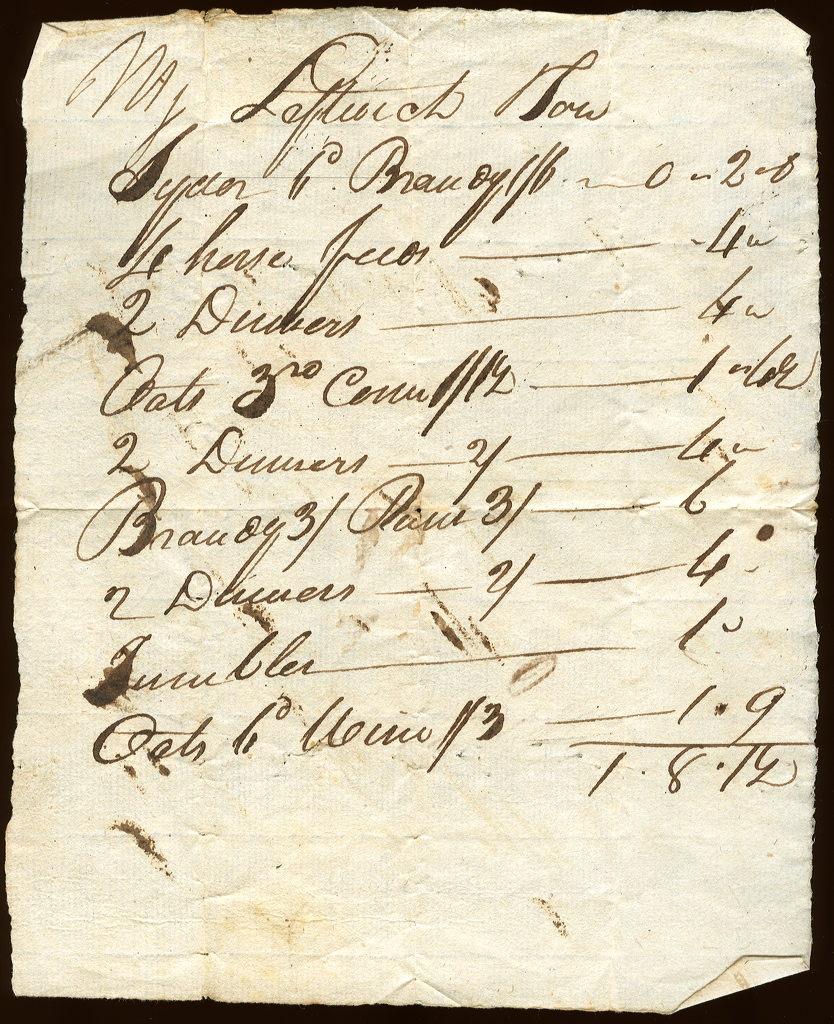 Maj Leftwich
Sydor 6d Brandy 1/6 — 0 " 2 " 0
4 horse feeds — " 4 "
2 Dinners — 4 "
Oats 3rd Corn 1/1½ — 1 " 4½
2 Dinners — 2/ — 4 "
Brandy 3/ Rum 3/ — 6
2 Dinners — 2/ — 4 "
Tumbler — 1 "
Oats 6d Wine 1/3 — 1 . 9
1 . 8 . 1½